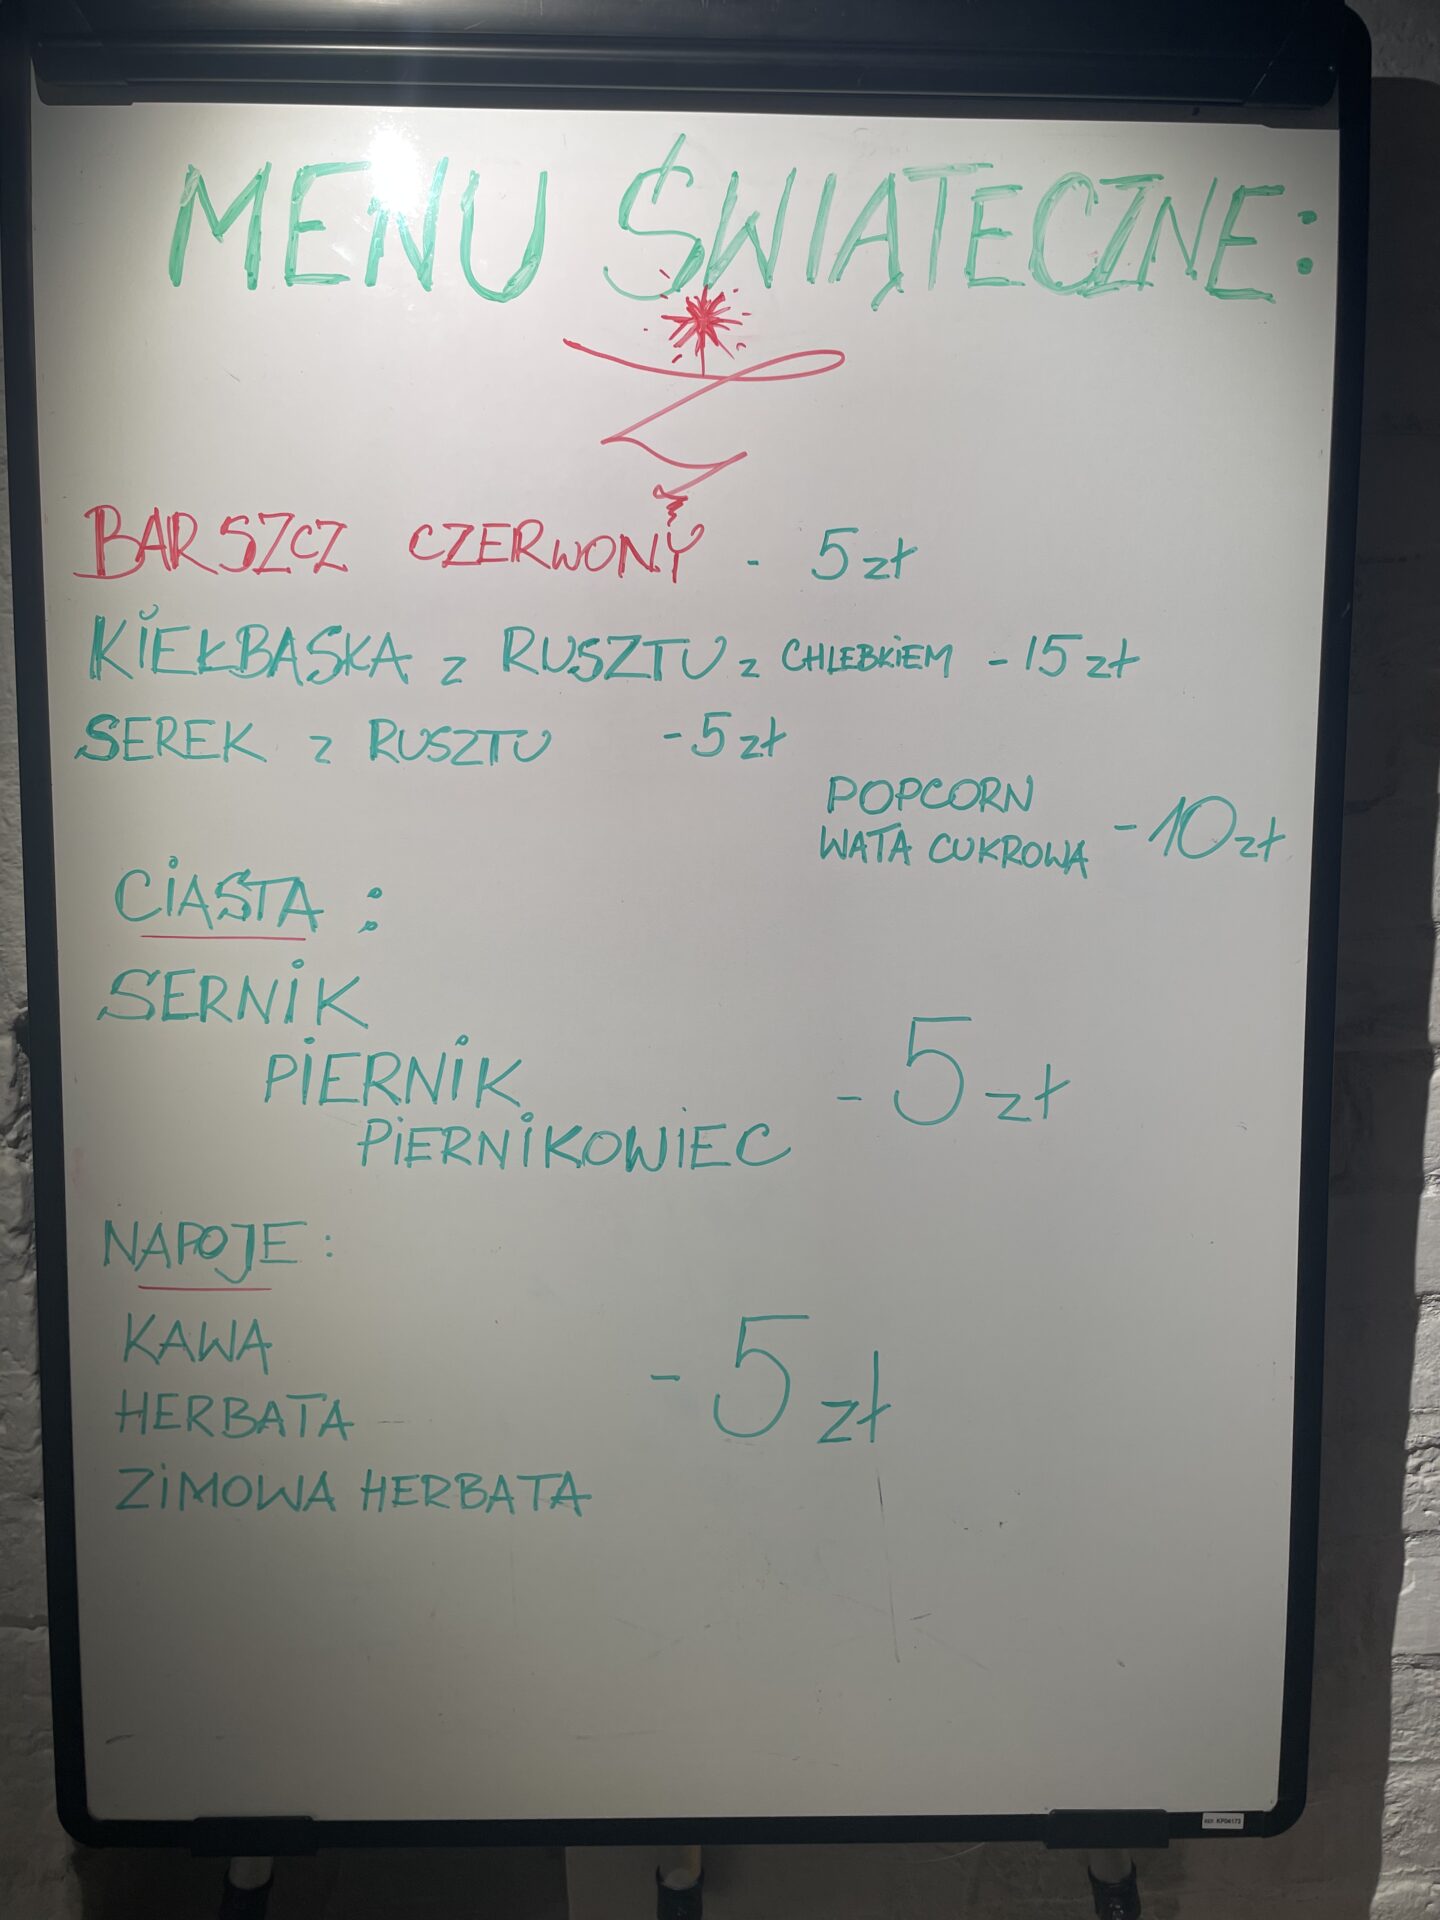 MENU ŚWIĄTECZNE:
BARSZCZ CZERWONY - 5 zł
KIEŁBASKA z RUSZTU z CHLEBKIEM - 15 zł
SEREK z RUSZTU - 5 zł
POPCORN
WATA CUKROWA - 10 zł
CIASTA :
SERNIK
PIERNIK - 5 zł
PIERNIKOWIEC
NAPOJE :
KAWA
HERBATA - 5 zł
ZIMOWA HERBATA
REF. KP04173